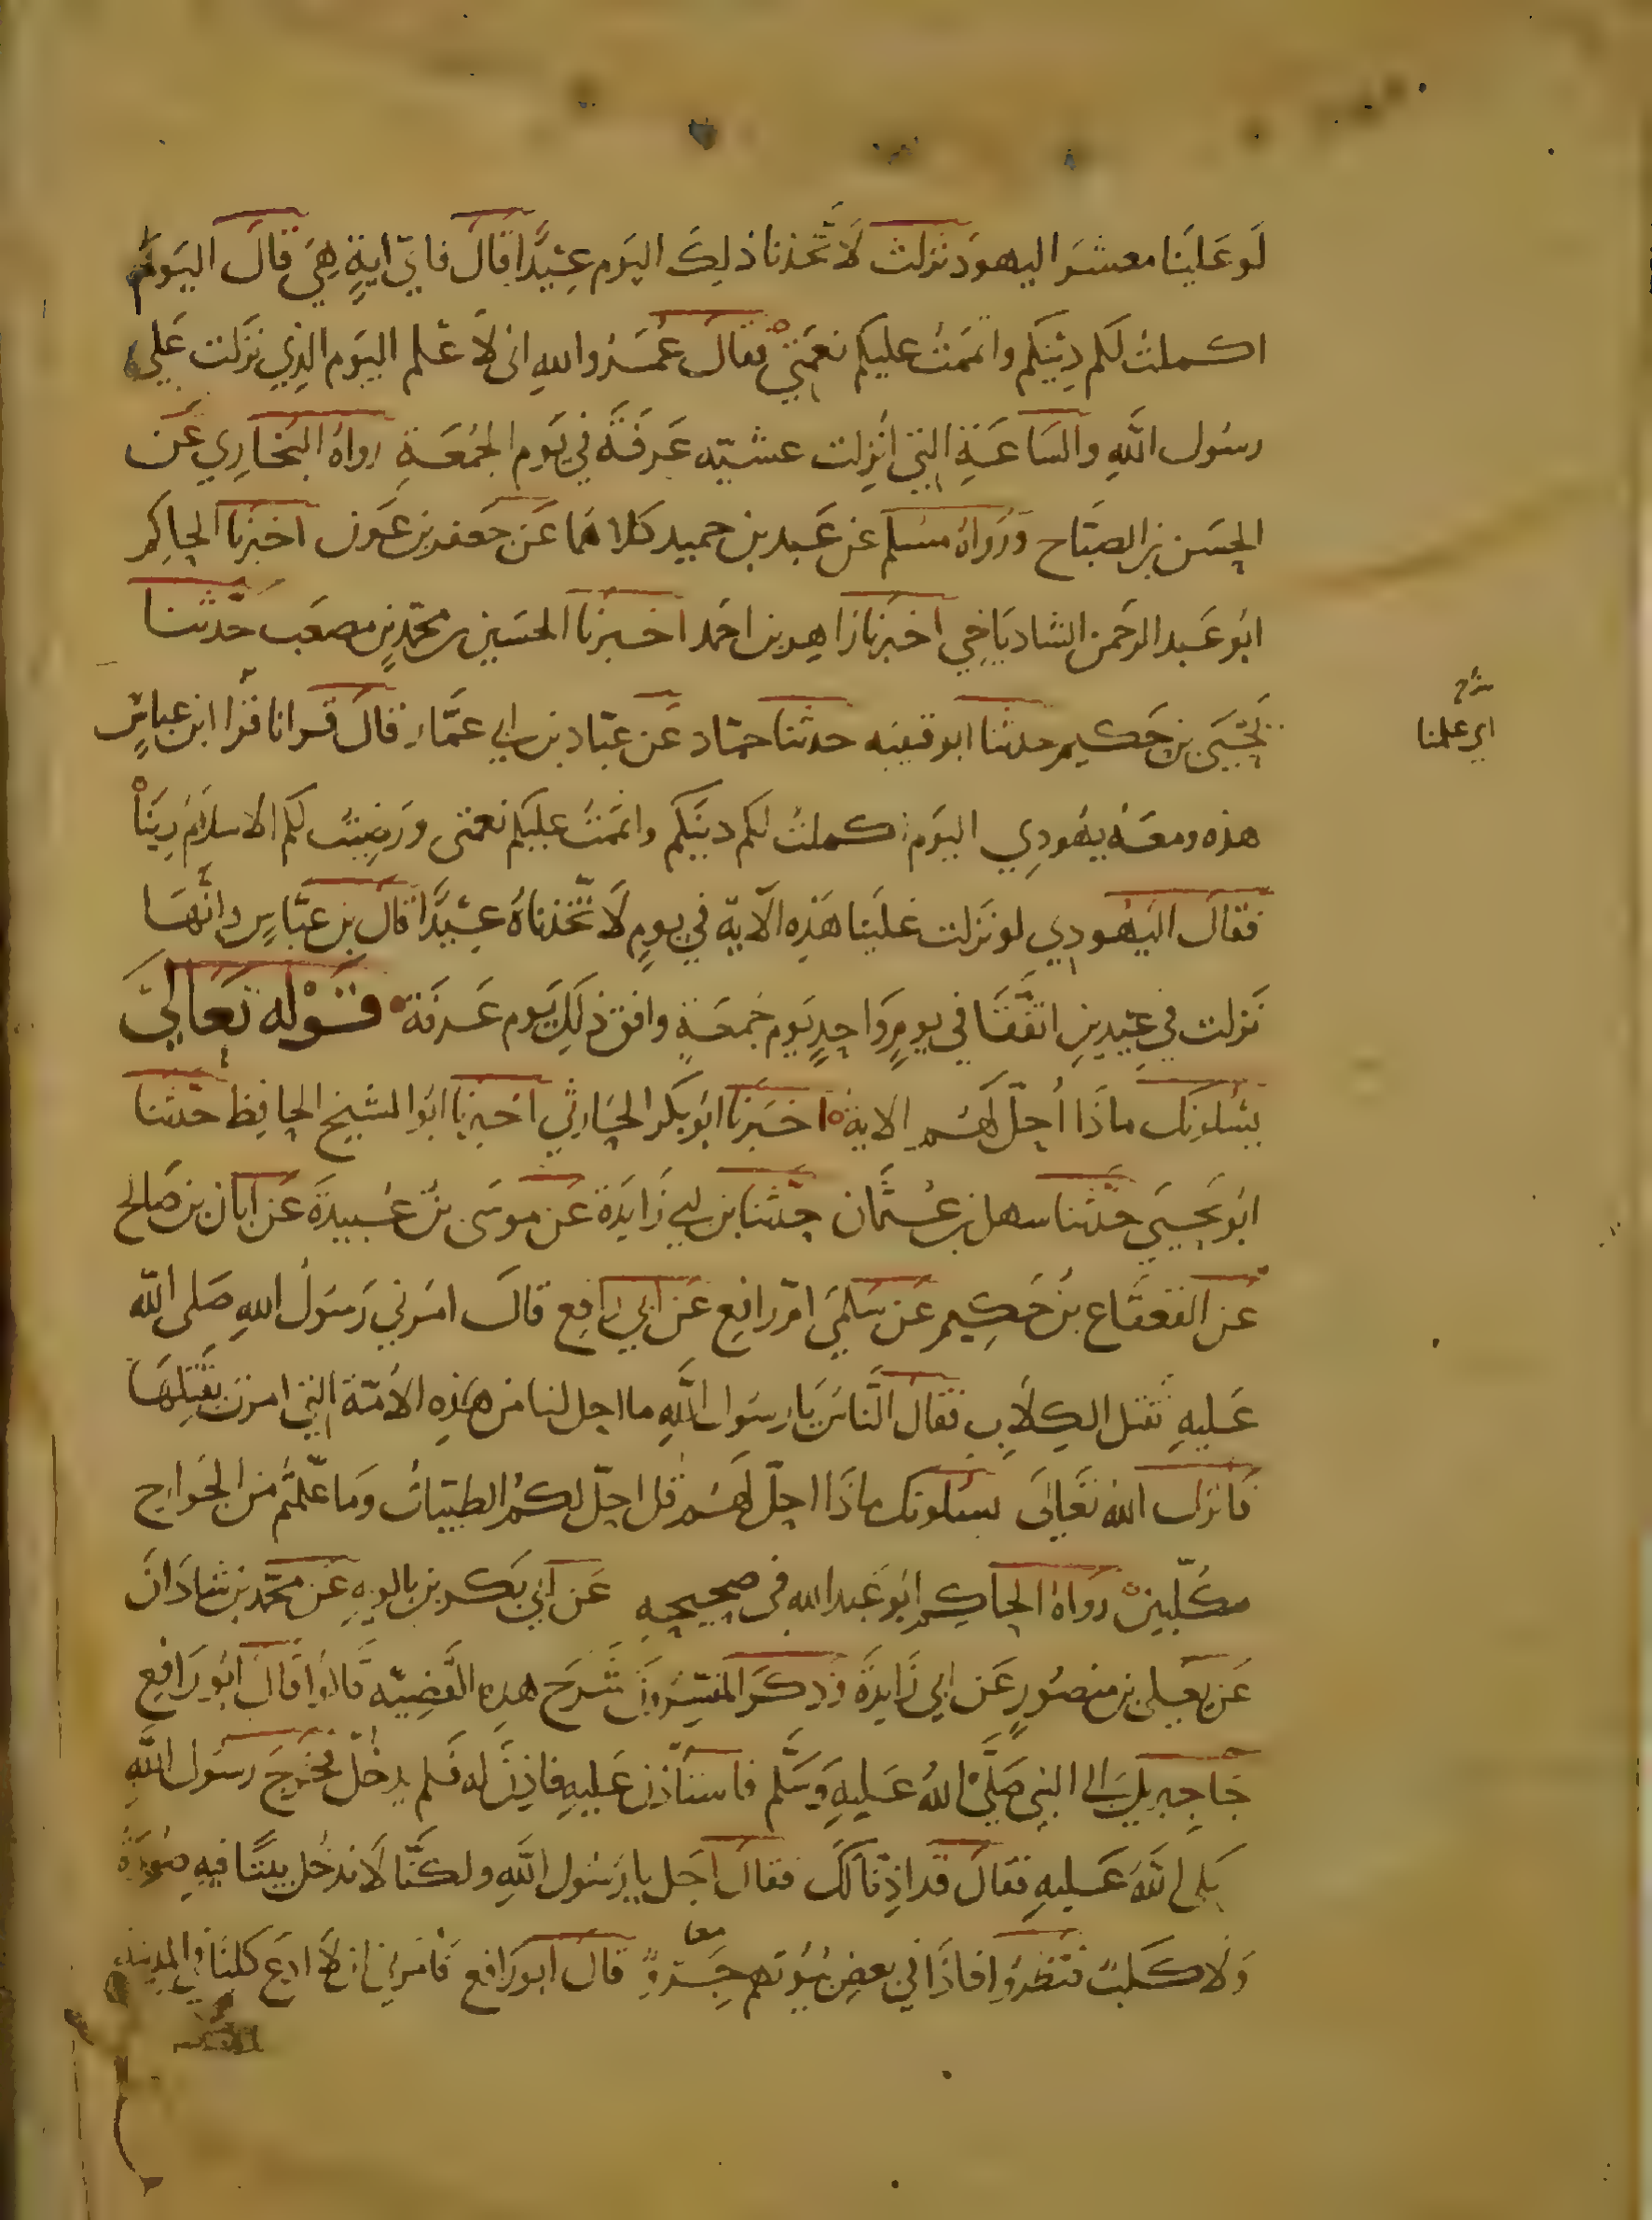 لَو عَلَينَا معشَر اليهود نزلت لَاتَّخذنا ذلِكَ اليَوم عِيْدًا قَالَ فايّ ايةٍ هِيَ قَالَ اليَومَ
اكملتُ لكم دِيْنَكم واتممَتُ عليكم نعمَتِي فقالَ عُمَرُ واللهِ انى لَاعْلم اليَوم الذِي نَزَلت عَلى
رسُول اللَّهِ والسَاعَةِ التِي اُنزِلت عشيّه عَرفَةَ في يَوم الجُمعَةِ رواهُ البُخارِي عَن
الحسَن بن الصبَّاح وَرَواهُ مسُلم عن عَبد بن حميد كلاهمَا عَن جَعفر بن عَون اخبَرنا الحاكِم
ابُو عَبد الرحَمن الشاديَاخِي اخبَرنا زَاهِر بن احمَد اخبرنا الحسَين بن محمّدٍ بن مصعَب حَدّثنا
يَحْيَى بن حَكيم حدثنا ابو قتيبه حدثنا حمّاد عَن عبّاد بن ابي عمَّار قالَ قرانا قرا ابن عباسٍ
اي علمنا
هذه ومعَهُ يهُودِي اليَوم اكملتُ لكم دينَكم واتممَتُ عليكم نعمتى ورَضِيتُ لكم الاسلَامَ دِينَا
فقَالَ اليَهُودِي لو نَزلت علَينا هَذِه الآية في يومٍ لَاتَّخذناهُ عِيْدًا قَالَ بن عبَّاسٍ وانَّهَا
نَزلت في عِيْدينِ اتفَّقَا في يومٍ وَاحِدٍ يَوم جُمعَةٍ وافق ذلِكَ يَوم عَرفَة قَوْله تَعَالىَ
يسَٔلونَك ماذَا أُحِلّ لَهُم الاية اخبَرنا ابُو بَكر الحَارثي اخبرنا ابُو الشيخ الحافظ حَدّثنا
ابُو يَحيىَ حَدّثنا سهل بن عُثمَان حَدّثنا بن ابي زَايدَة عَن موسَى بن عُبيدَةَ عَن ابَان بن صَالح
عَن القعقَاع بن حَكِيم عَن سَلمىَ امّ رافع عَن ابي رَافِع قالَ امَرني رَسوُلُ اللهِ صَلى اللّه
عَليهِ بقتل الكِلَابِ فقالَ النَّاسُ يَا رسوُل اللَّهِ ما احل لنا من هَذِهِ الامّة التي امرتَ بقَتلِهَا
فَانزلَ اللهُ تعَالىَ يسَٔلونَك ماذَا احلّ لَهُم قل احلّ لكُم الطيبّاتُ وَمَا عَلّمتُم منَ الجَوارِح
مكَلّبينْ رَوَاهُ الحاكِم ابُو عَبد الله فى صحيحِهِ عَن ابي بَكر بن بالويهِ عَن محمّد بن شاذَانَ
عَن يعَلى بن منصُورٍ عَن ابي زَايدَةَ وَذكرَ المفسّرُونَ شَرحَ هذِه القَضِيّه قَالُوا قَالَ ابُو رَافِع
جَا جبريلُ الى النبي صَلَّىْ اللهُ عَليهِ وَسَلَّم فاستأذن عَليهِ فاذِنَ له فَلم يدخُلْ فخرجَ رسَول اللَّهِ
صَلى اللَّهُ عَليهِ فقالَ قد اذِنّا لَكَ فقالَ اجَل يا رَسوُل اللَّهِ ولكنَّا لَا ندخُل بيتًا فيهِ صُورَةٌ
وَلَا كلبٌ فنظَرُوا فاذَا في بعضِ بُيُوتهم جِروٌ قالَ ابُو رَافع فَامَرني ان لَا ادع كلبًا في المدينة